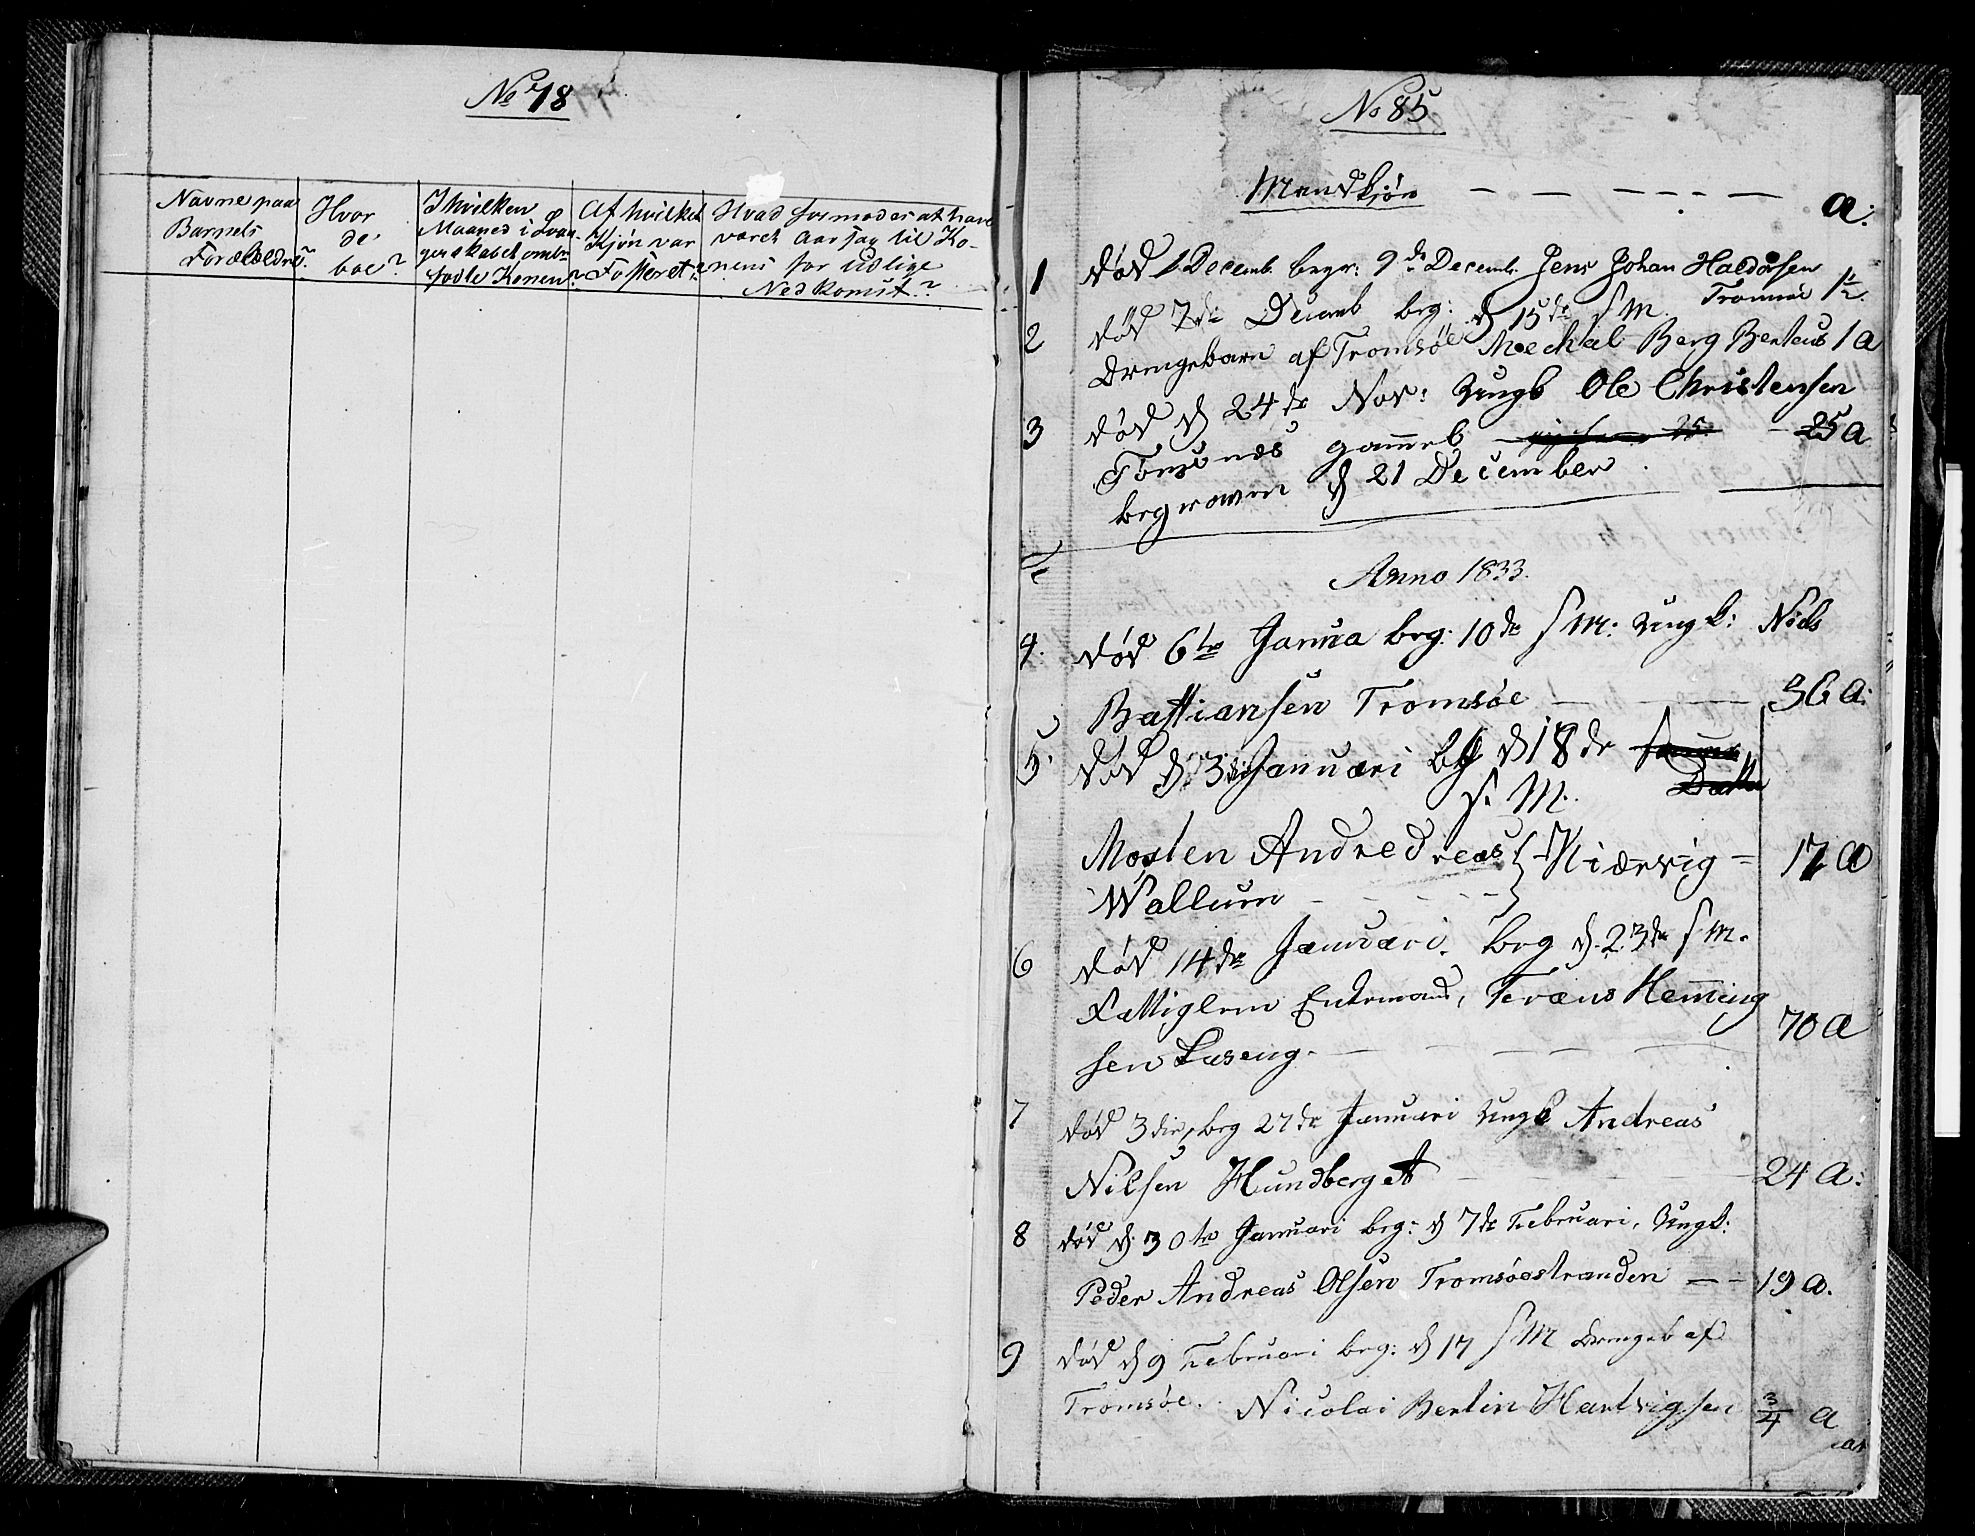 No 78
Navne paa Barnets Forældre?
Hvor de boe?
I hvilken Maaned i Svangerskabet ombr fødte Konen?
Af hvilket Kjøn var Fosteret?
Hvad formodes at have været Aarsag til Konens for tidlige Nedkomst?
No 85
Mandkjøn — — — — — — a:
1 død 1 Decemb. begr: 9de Decemb. Jens Johan Haldorsen
Tromsøe 1½
2 død 7de Decemb beg: d 15de s M.
Drengebarn af Tromsøe Mechal Berg Benteus 1 a
3 død d 24de Nov: Ungk Ole Christensen
Tonsnes gammel 25 a
begraven d 21 December.
Anno 1833.
4. død 6te Janua beg: 10de s M: Ungk: Niels
Bastiansen Tromsøe — — — 36 a:
5. død d: 3die Januari bg d 18de
s. M.
Morten Andredreas } Kiærvig = 17 a
Wallum
6 død 14de Januari. beg d. 23de s M.
Fattiglem Enkemand, Frans Heming
70 a
sen Laseng. — — — —
7 død 3die, beg 27de Januari Ungk Andreas
Nilsen Hundberget — — 24 a:
8 død d: 30te Januari beg: d 7de Februari, Ungk:
Peder Andreas Olsen Tromsøestranden — — 19 a.
9 død d 9 Februari beg: d 17 s M Drengeb af
Tromsøe. Nicolai Bertin Hartvigsen ¾ a